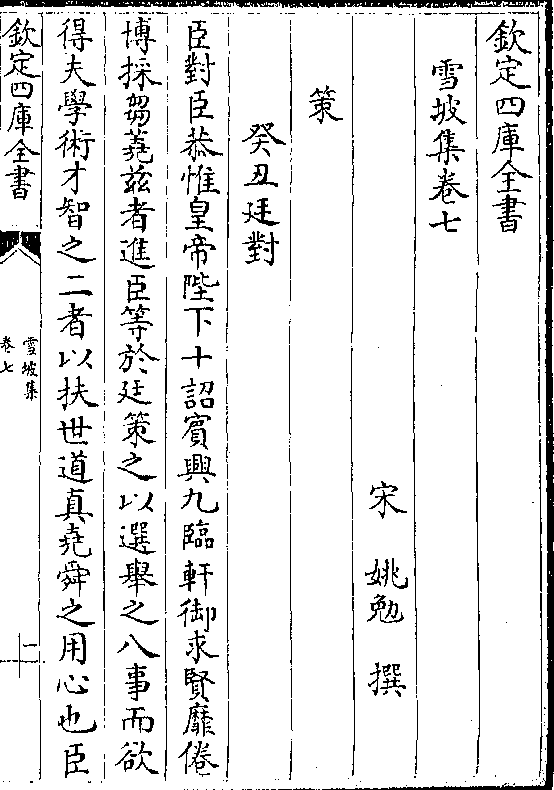 欽定四庫全書
雪坡集卷七
宋 姚勉 撰
策
癸丑廷對
臣對臣恭惟皇帝陛下十詔賓興九臨軒御求賢靡倦
博採芻蕘兹者進臣等於廷策之以選舉之八事而欲
得夫學術才智之二者以扶世道真堯舜之用心也臣
欽定四庫全書
雪坡集
卷七
一